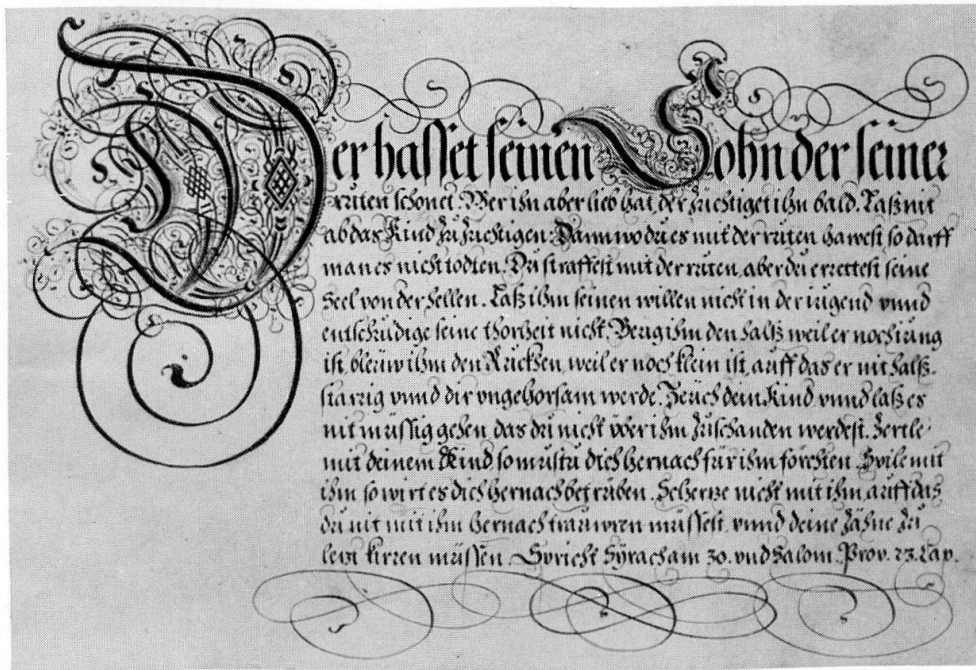 Der hasset seinen Sohn der seiner
ruten schonet. Wer ihn aber lieb hat, der züchtiget ihn bald. Laß nit
ab das Kind zu züchtigen. Dann wo du es mit der ruten hawest so darff
man es nicht todten. Du straffest mit der ruten, aber du errettest seine
Seel von der Hellen. Laß ihm seinen willen nicht in der iugend vnnd
entschudige seine thorheit nicht. Beug ihm den Halß weil er noch iung
ist, bleuw ihm den Rucken, weil er noch klein ist, auff das er nit halß
starrig vnnd dir vngehorsam werde. Zeuch dein Kind vnnd laß es
nit mussig gehen das du nicht vber ihm zuschanden werdest. Zertle
mit deinem Kind so mustu dich hernach für ihm förchten. Spile mit
ihm so wirt es dich hernach betruben. Scherze nicht mit ihm, auff das
du nit mit ihm hernach trauwren mussest, vnnd deine Zähne zu
lezt kirren müssen. Spricht Syrach am 30. vnd Salom. Prov. 23. Cap.